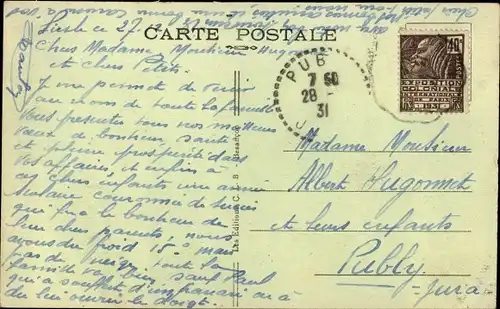 CARTE POSTALE
Chers Madame, Monsieur Hugonnet
et chers Petits.
Je me permet de venir
au nom de toute la famille
vous presenter tous nos meilleurs
vœux de bonheur, santé
et pleine prospérité dans
vos affaires, et enfin à
ces chers enfants une année
scolaire couronnée de succès
qui fera le bonheur de
leur chers parents, nous
avons du froid 15° mais
pas de neige. Toute la
famille va bien sauf Paul
qui a souffert d'un panari on a
du lui ouvrir le doigt.
Les Editions C. L. B. - Besançon
PUB
7 50
28 -
31
40
EXPOSITION
COLONIALE
INTERNATIONALE
PARIS 1931
Madame Monsieur
Albert Hugonnet
et leurs enfants
Publy
Jura